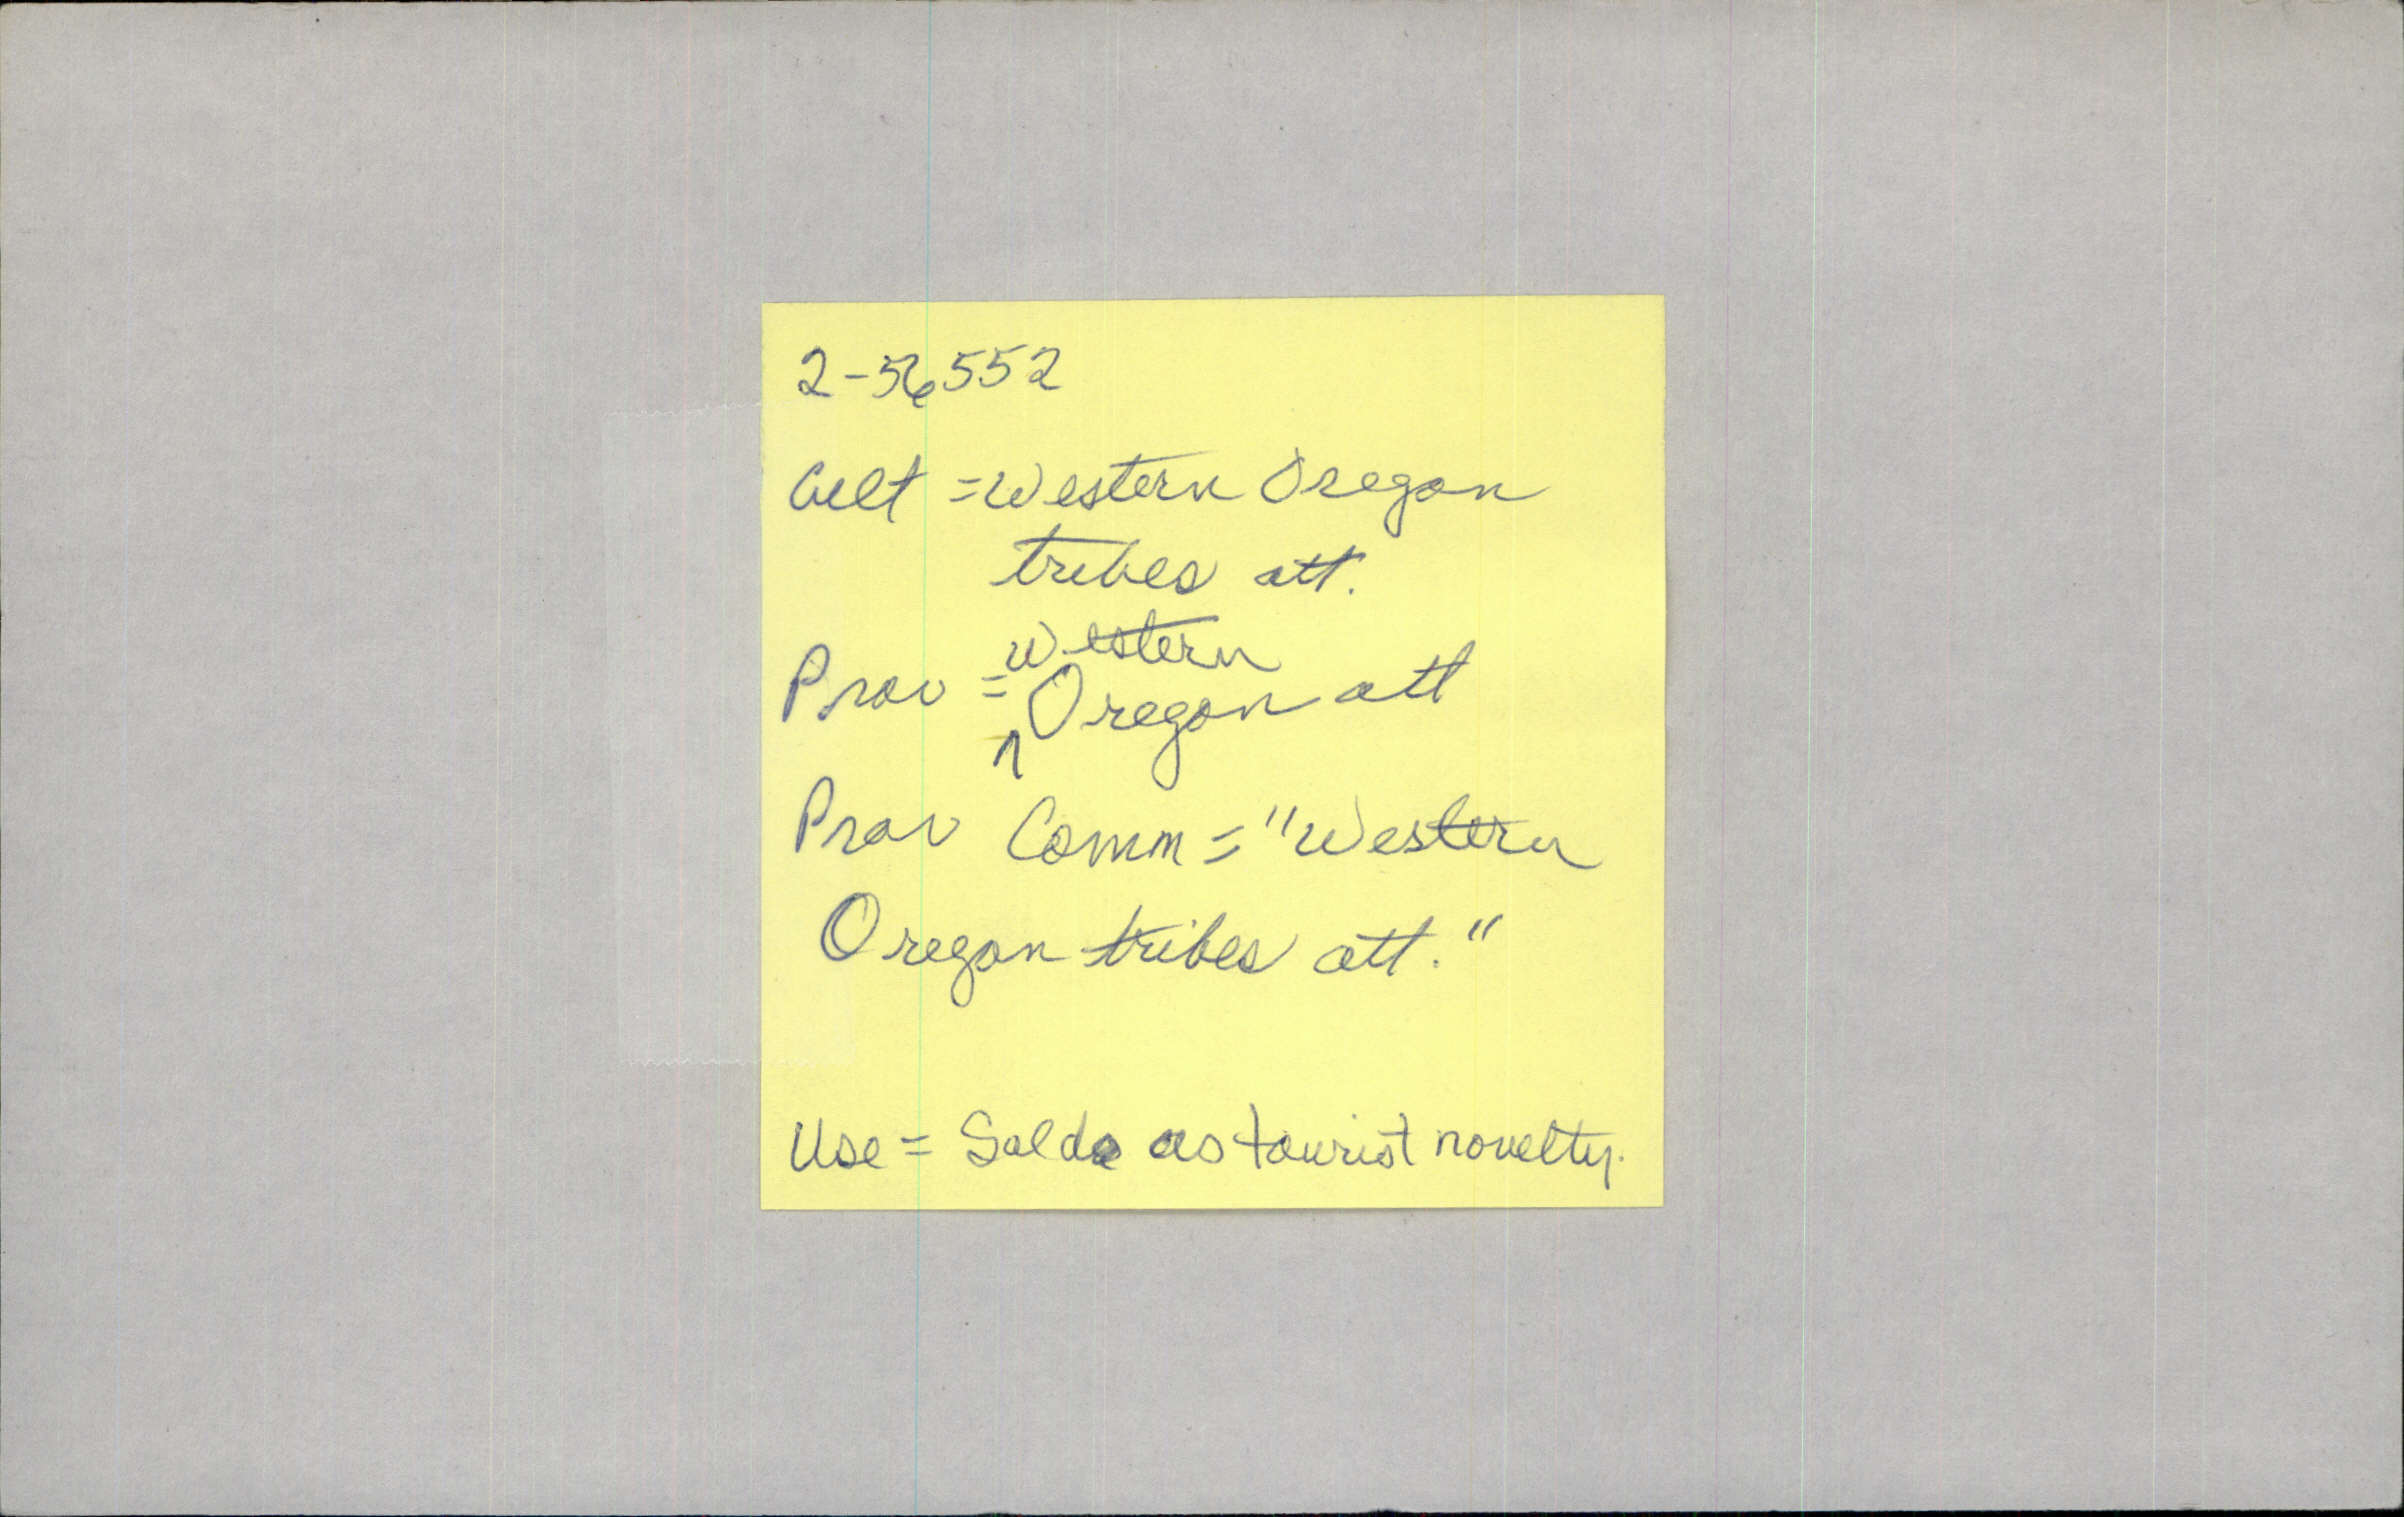 2-56552
Cult = Western Oregon
tribes att.
Prov = Western Oregon att
Prov Comm = "Western
Oregon tribes att."
Use = Sold as tourist novelty.